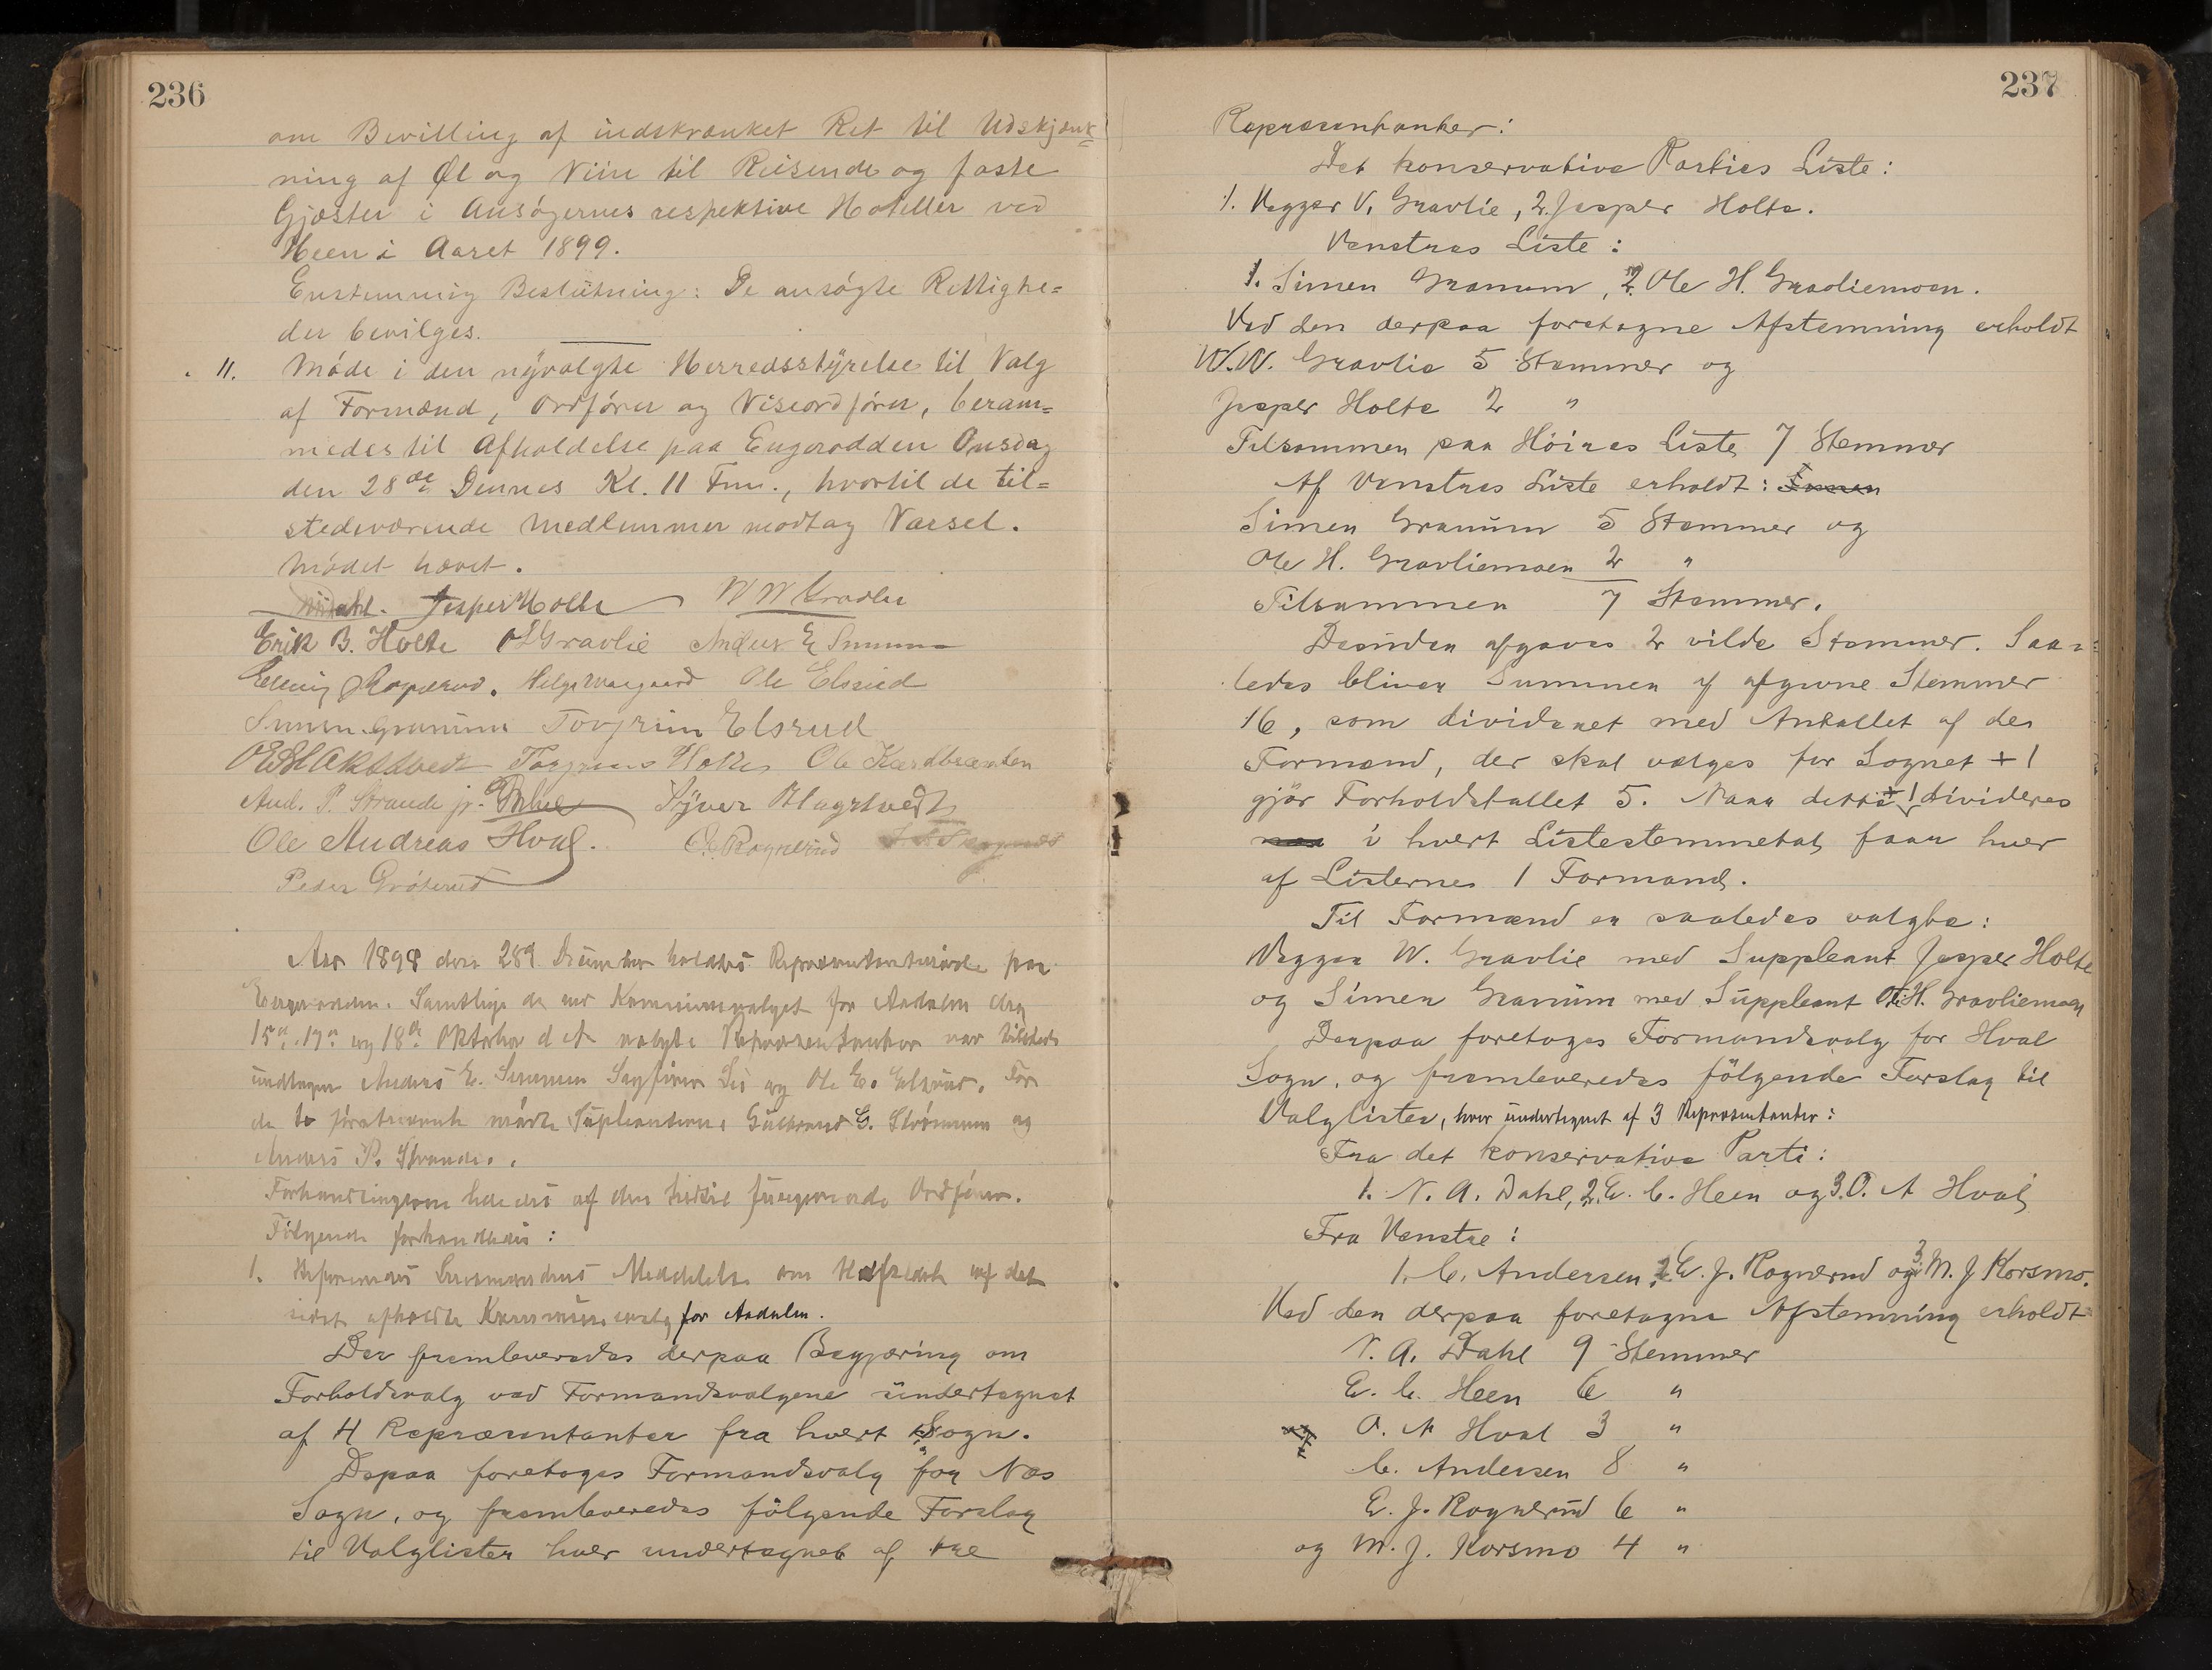 236
om Bevilling af indskrænket Ret til Udskjænk=
ning af Øl og Viin til Reisende og faste
Gjæster i Ansøgernes respektive Hoteller ved
Heen i Aaret 1899.
Enstemmig Beslutning: De ansøgte Rettighe=
der bevilges.
11. Møde i den nyvalgte Herredsstyrelse til Valg
af Formænd, Ordfører og Viseordfører, beram=
medes til Afholdelse paa Engerodden Onsdag
den 28de Dennes Kl. 11 Fm., hvortil de til=
stedeværende Medlemmer modtog Varsel.
Mødet hævet.
Jesper Holte W W Gravlie
Erik B. Holte O Gravlie Anders E Semmen
Helge Ole Elsrud
Simen Granum Torgrim Elsrud
Torgrim Holte Ole
And. P. Strande jr. Syver Hagstvedt
Ole Andreas Hval. E. Rognerud
Peder Grøterud
Aar 1898 den 28de December holdtes Repræsentantmøde paa
Engerodden. Samtlige de ved Kommunevalget for Aadalen den
15de, 17de og 18de Oktober d A valgte Repræsentanter var tilstede
undtagen Anders E. Semmen og Ole E. Elsrud. For
de to møtte Supleanterne Gulbrand G. Strømmen og
Anders P. Strande.
Forhandlingerne lededes af den hidtil fungerende Ordfører.
Følgende forhandledes:
1. Lensmandens Meddelelse om Udfaldet af det
sidst afholdte Kommunevalg for Aadalen.
Der fremleveredes derpaa Begjæring om
Forholdsvalg ved Formandsvalgene undertegnet
af 4 Repræsentanter fra hvert Sogn.
Depaa foretoges Formandsvalg for Næs
Sogn, og fremleveredes følgende Forslag
til Valglister hver undertegnet af tre
237
Repræsentanter:
Det konservative Parties Liste:
1. Vegger V. Gravlie, 2. Jesper Holte.
Venstres Liste:
1. Simen Granum, 2. Ole H. Gravliemoen.
Ved den derpaa foretagne Afstemning erholdt
W. W. Gravlie 5 Stemmer og
Jesper Holte 2 "
Tilsammen paa Høires Liste 7 Stemmer
Af Venstres Liste erholdt:
Simen Granum 5 Stemmer og
Ole H. Gravliemoen 2 "
Tilsammen 7 Stemmer.
Desuden afgaves 2 vilde Stemmer. Saa=
ledes bliver Summen af afgivne Stemmer
16, som divideret med Antallet af de
Formænd, der skal vælges for Sognet + 1
gjør Forholdstallet 5. Naar dette + 1 divideres
i hvert Listestemmetal, faar hver
af Listernes 1 Formand.
Til Formænd er saaledes valgte:
Vegger W. Gravlie med Suppleant Jesper Holte
og Simen Granum med Suppleant O. H. Gravliemoen
Derpaa foretoges Formandsvalg for Hval
Sogn, og fremleveredes følgende Forslag til
Valglister, hver undertegnet af 3 Repræsentanter:
Fra det konservative Parti:
1. N. A. Dahl, 2. E. C. Heen og 3. O. A Hval,
Fra Venstre:
1. C. Andersen, 2. E. J. Rognerud og 3. M. J Korsmo.
Ved den derpaa foretagne Afstemning erholdt
N. A. Dahl 9 Stemmer
E. C. Heen 6 "
O. A Hval 3 "
C. Andersen 8 "
E. J. Rognerud 6 "
og M. J. Korsmo 4 "